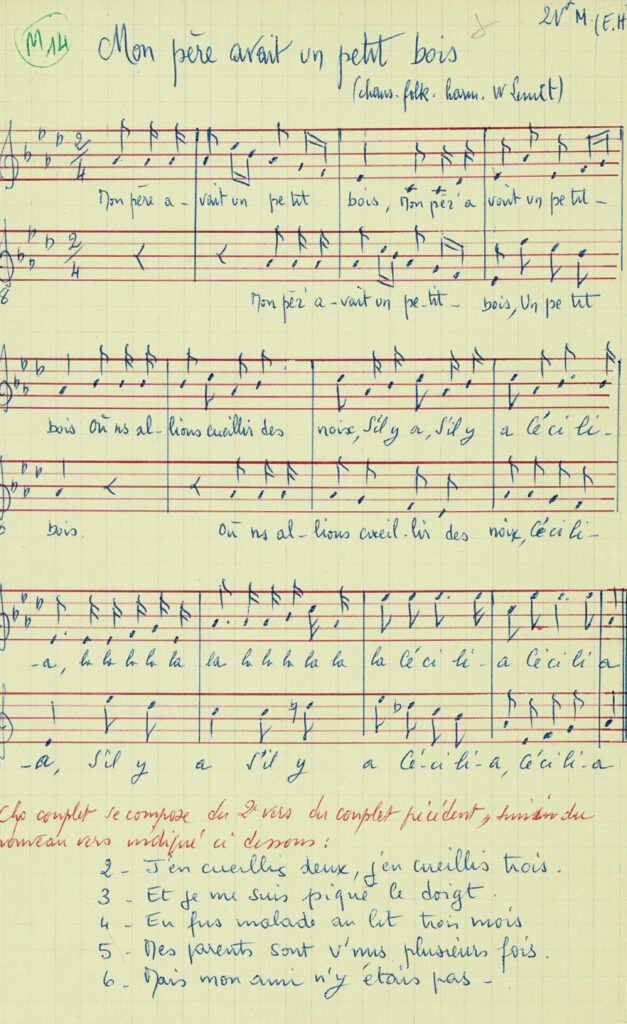 M14
2Vx M. (E.H
Mon père avait un petit bois
(chans. folk. harm. W Lemit)
2/4
Mon père a- vait un pe tit bois, Mon pèr' a vait un pe tit-
2/4
8
Mon pèr' a-vait un pe-tit- bois, Un pe tit
bois Où ns al- lions cueillir des noix, S'il y a, S'il y a Cé ci li-
bois. Où ns al- lions cueil-lir des noix, Cé ci li-
-a, la la la la la la la la la la la la Cé ci li - a Cé ci li a
-a, S'il y a S'il y a Cé-ci li-a, Cé ci li-a
couplet se compose du 2e vers du couplet précédent, du
nouveau vers indiqué ci dessous :
2 - J'en cueillis deux, j'en cueillis trois.
3 - Et je me suis piqué le doigt.
4 - En fus malade au lit trois mois
5 - Mes parents sont v'nus plusieurs fois.
6 - Mais mon ami n'y étais pas -